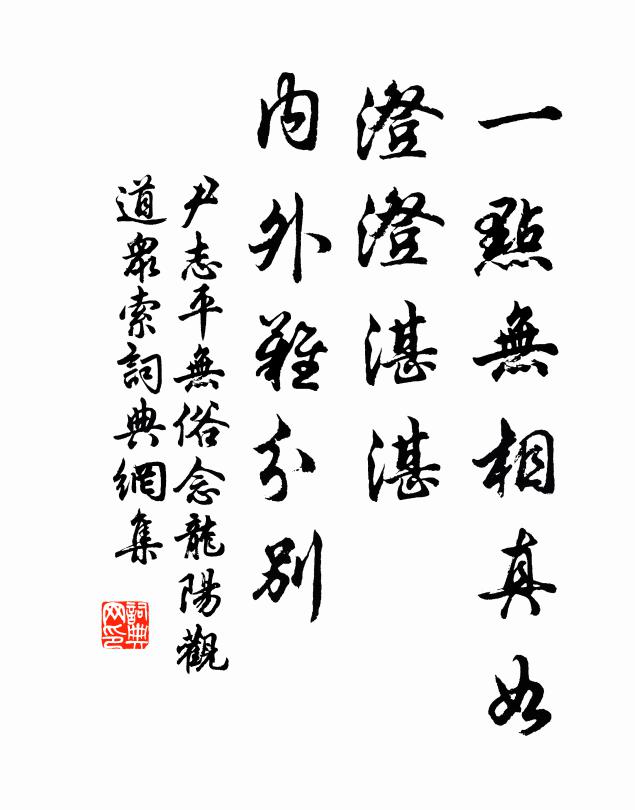 一點無相真如
澄澄湛湛
内外難分別
尹志平無俗念龍陽觀
道眾索詞典網集
詞典網印